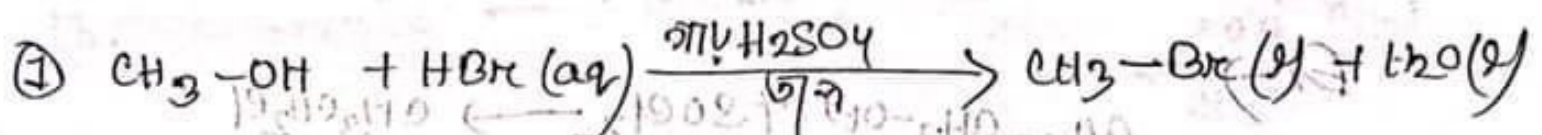 ① CH3-OH + HBr (aq) গাঢ় H2SO4 / তাপ → CH3-Br (l) + H2O (l)